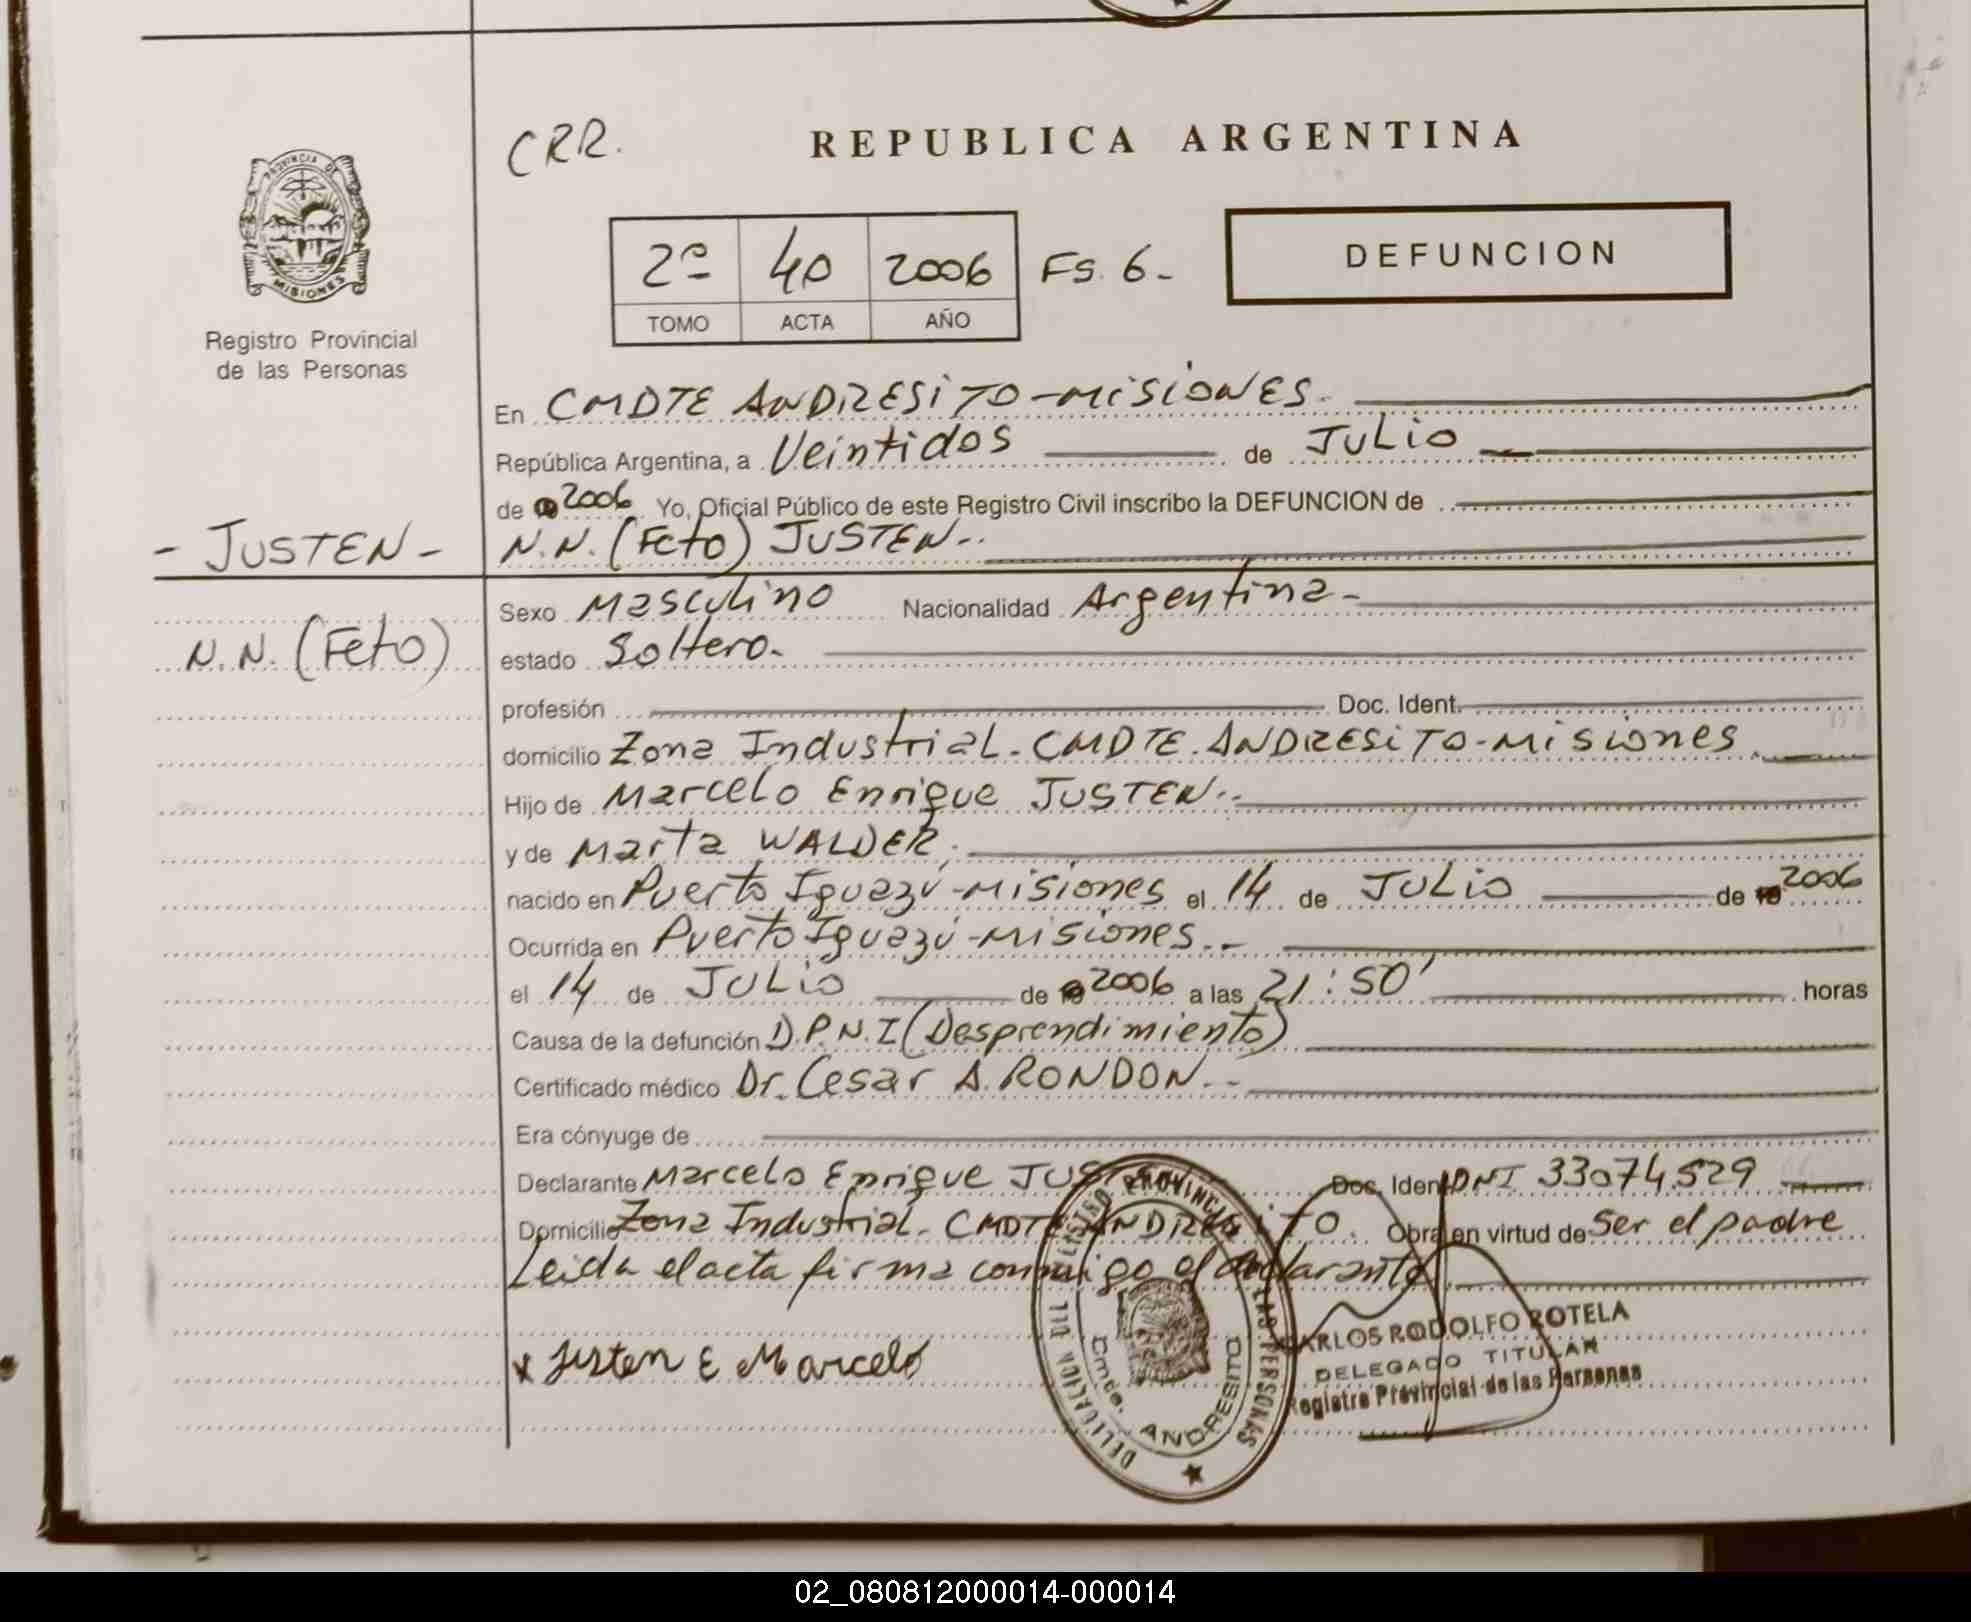 CRR.
REPUBLICA ARGENTINA
PROVINCIA DE MISIONES
Registro Provincial
de las Personas
2º 40 2006 Fs. 6-
TOMO ACTA AÑO
DEFUNCION
En CMDTE ANDRESITO-MISIONES.
República Argentina, a Veintidos de JULIO
de 2006 Yo, Oficial Público de este Registro Civil inscribo la DEFUNCION de
- JUSTEN - N.N. (Feto) JUSTEN..
Sexo Masculino Nacionalidad Argentina-
N.N. (Feto) estado Soltero.
profesión Doc. Ident.
domicilio Zona Industrial. CMDTE. ANDRESITO-Misiones.
Hijo de Marcelo Enrique JUSTEN..
y de Marta WALDER.
nacido en Puerto Iguazú-Misiones el 14 de JULIO de 2006
Ocurrida en Puerto Iguazú-Misiones..
el 14 de JULIO de 2006 a las 21:50' horas
Causa de la defunción D.P.N.I (Desprendimiento)
Certificado médico Dr. Cesar A. RONDON..
Era cónyuge de
Declarante Marcelo Enrique JUSTEN Doc. Ident DNI 33074.529
Domicilio Zona Industrial. CMDTE ANDRESITO. Obra en virtud de Ser el padre
Leida el acta firma conmigo el declarante.
x Justen E Marcelo
DELEGACION DEL REGISTRO PROVINCIAL DE LAS PERSONAS
Cmdte. ANDRESITO
CARLOS RODOLFO ROTELA
DELEGADO TITULAR
Registro Provincial de las Personas
02_080812000014-000014